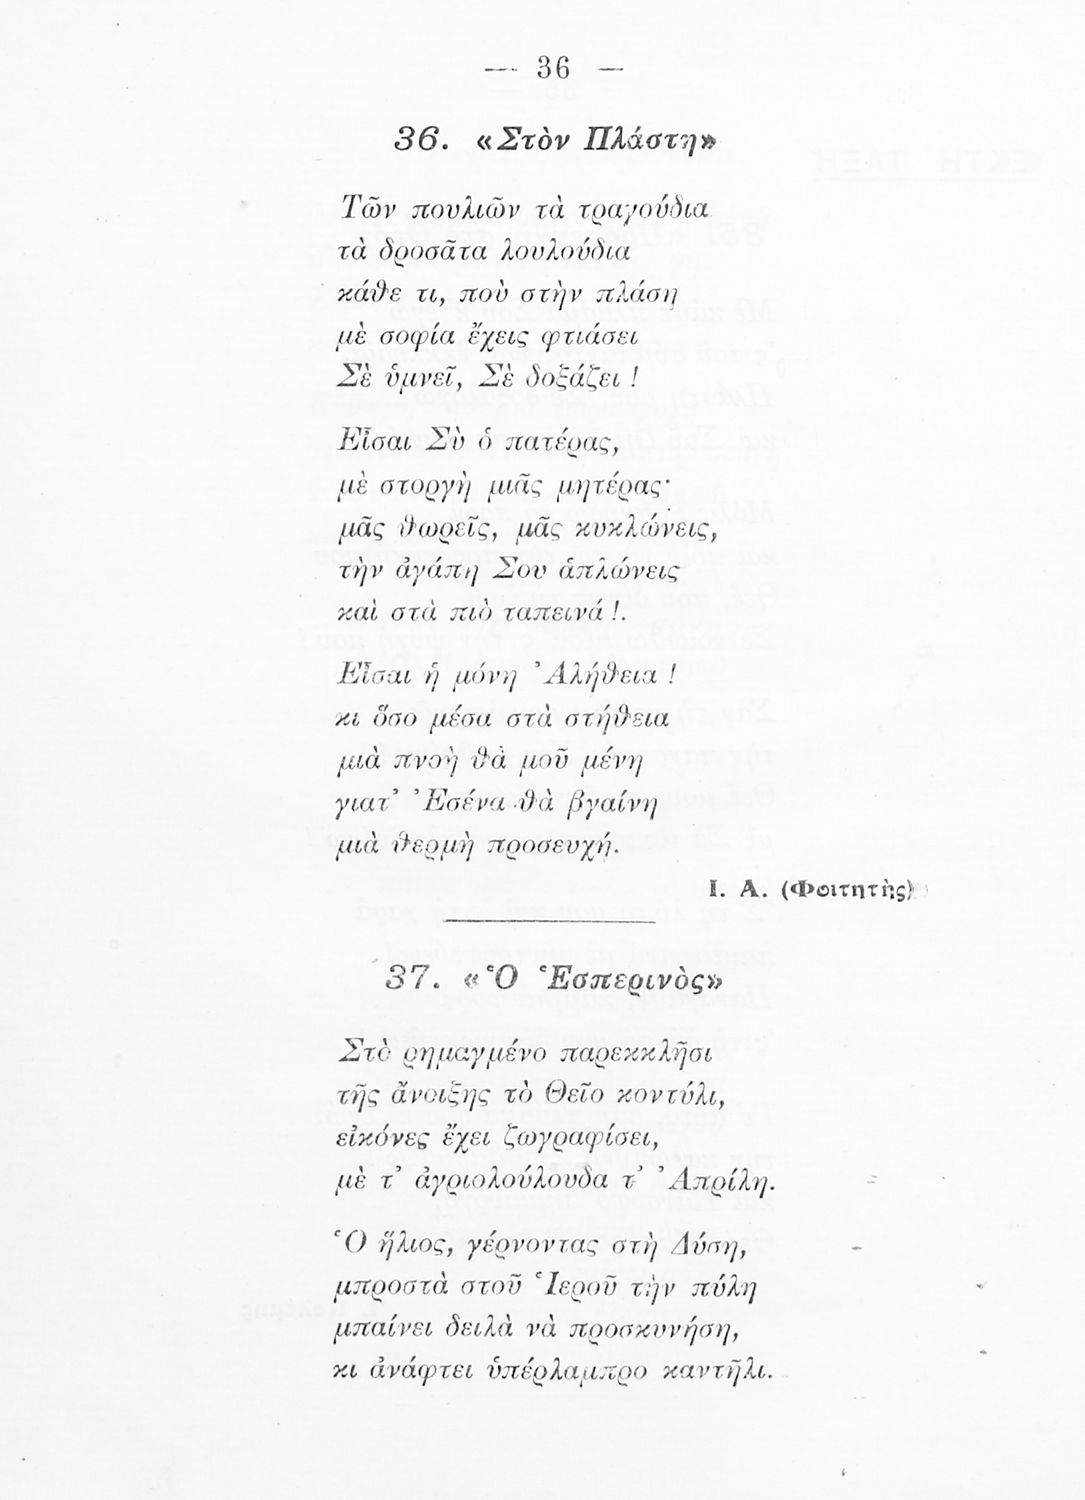 — 36 —
36. «Στὸν Πλάστη»
Τῶν πουλιῶν τὰ τραγούδια
τὰ δροσᾶτα λουλούδια
κάθε τι, ποὺ στὴν πλάση
μὲ σοφία ἔχεις φτιάσει
Σὲ ὑμνεῖ, Σὲ δοξάζει !
Εἶσαι Σὺ ὁ πατέρας,
μὲ στοργὴ μιᾶς μητέρας·
μᾶς θωρεῖς, μᾶς κυκλώνεις,
τὴν ἀγάπη Σου ἁπλώνεις
καὶ στὰ πιὸ ταπεινά !.
Εἶσαι ἡ μόνη Ἀλήθεια !
κι ὅσο μέσα στὰ στήθεια
μιὰ πνοὴ θὰ μοῦ μένη
γιατ’ Ἐσένα θὰ βγαίνη
μιὰ θερμὴ προσευχή.
Ι. Α. (Φοιτητὴς)
37. «Ὁ Ἑσπερινὸς»
Στὸ ρημαγμένο παρεκκλῆσι
τῆς ἄνοιξης τὸ Θεῖο κοντύλι,
εἰκόνες ἔχει ζωγραφίσει,
μὲ τ’ ἀγριολούλουδα τ’ Ἀπρίλη.
Ὁ ἥλιος, γέρνοντας στὴ Δύση,
μπροστὰ στοῦ Ἱεροῦ τὴν πύλη
μπαίνει δειλὰ νὰ προσκυνήση,
κι ἀνάφτει ὑπέρλαμπρο καντῆλι.